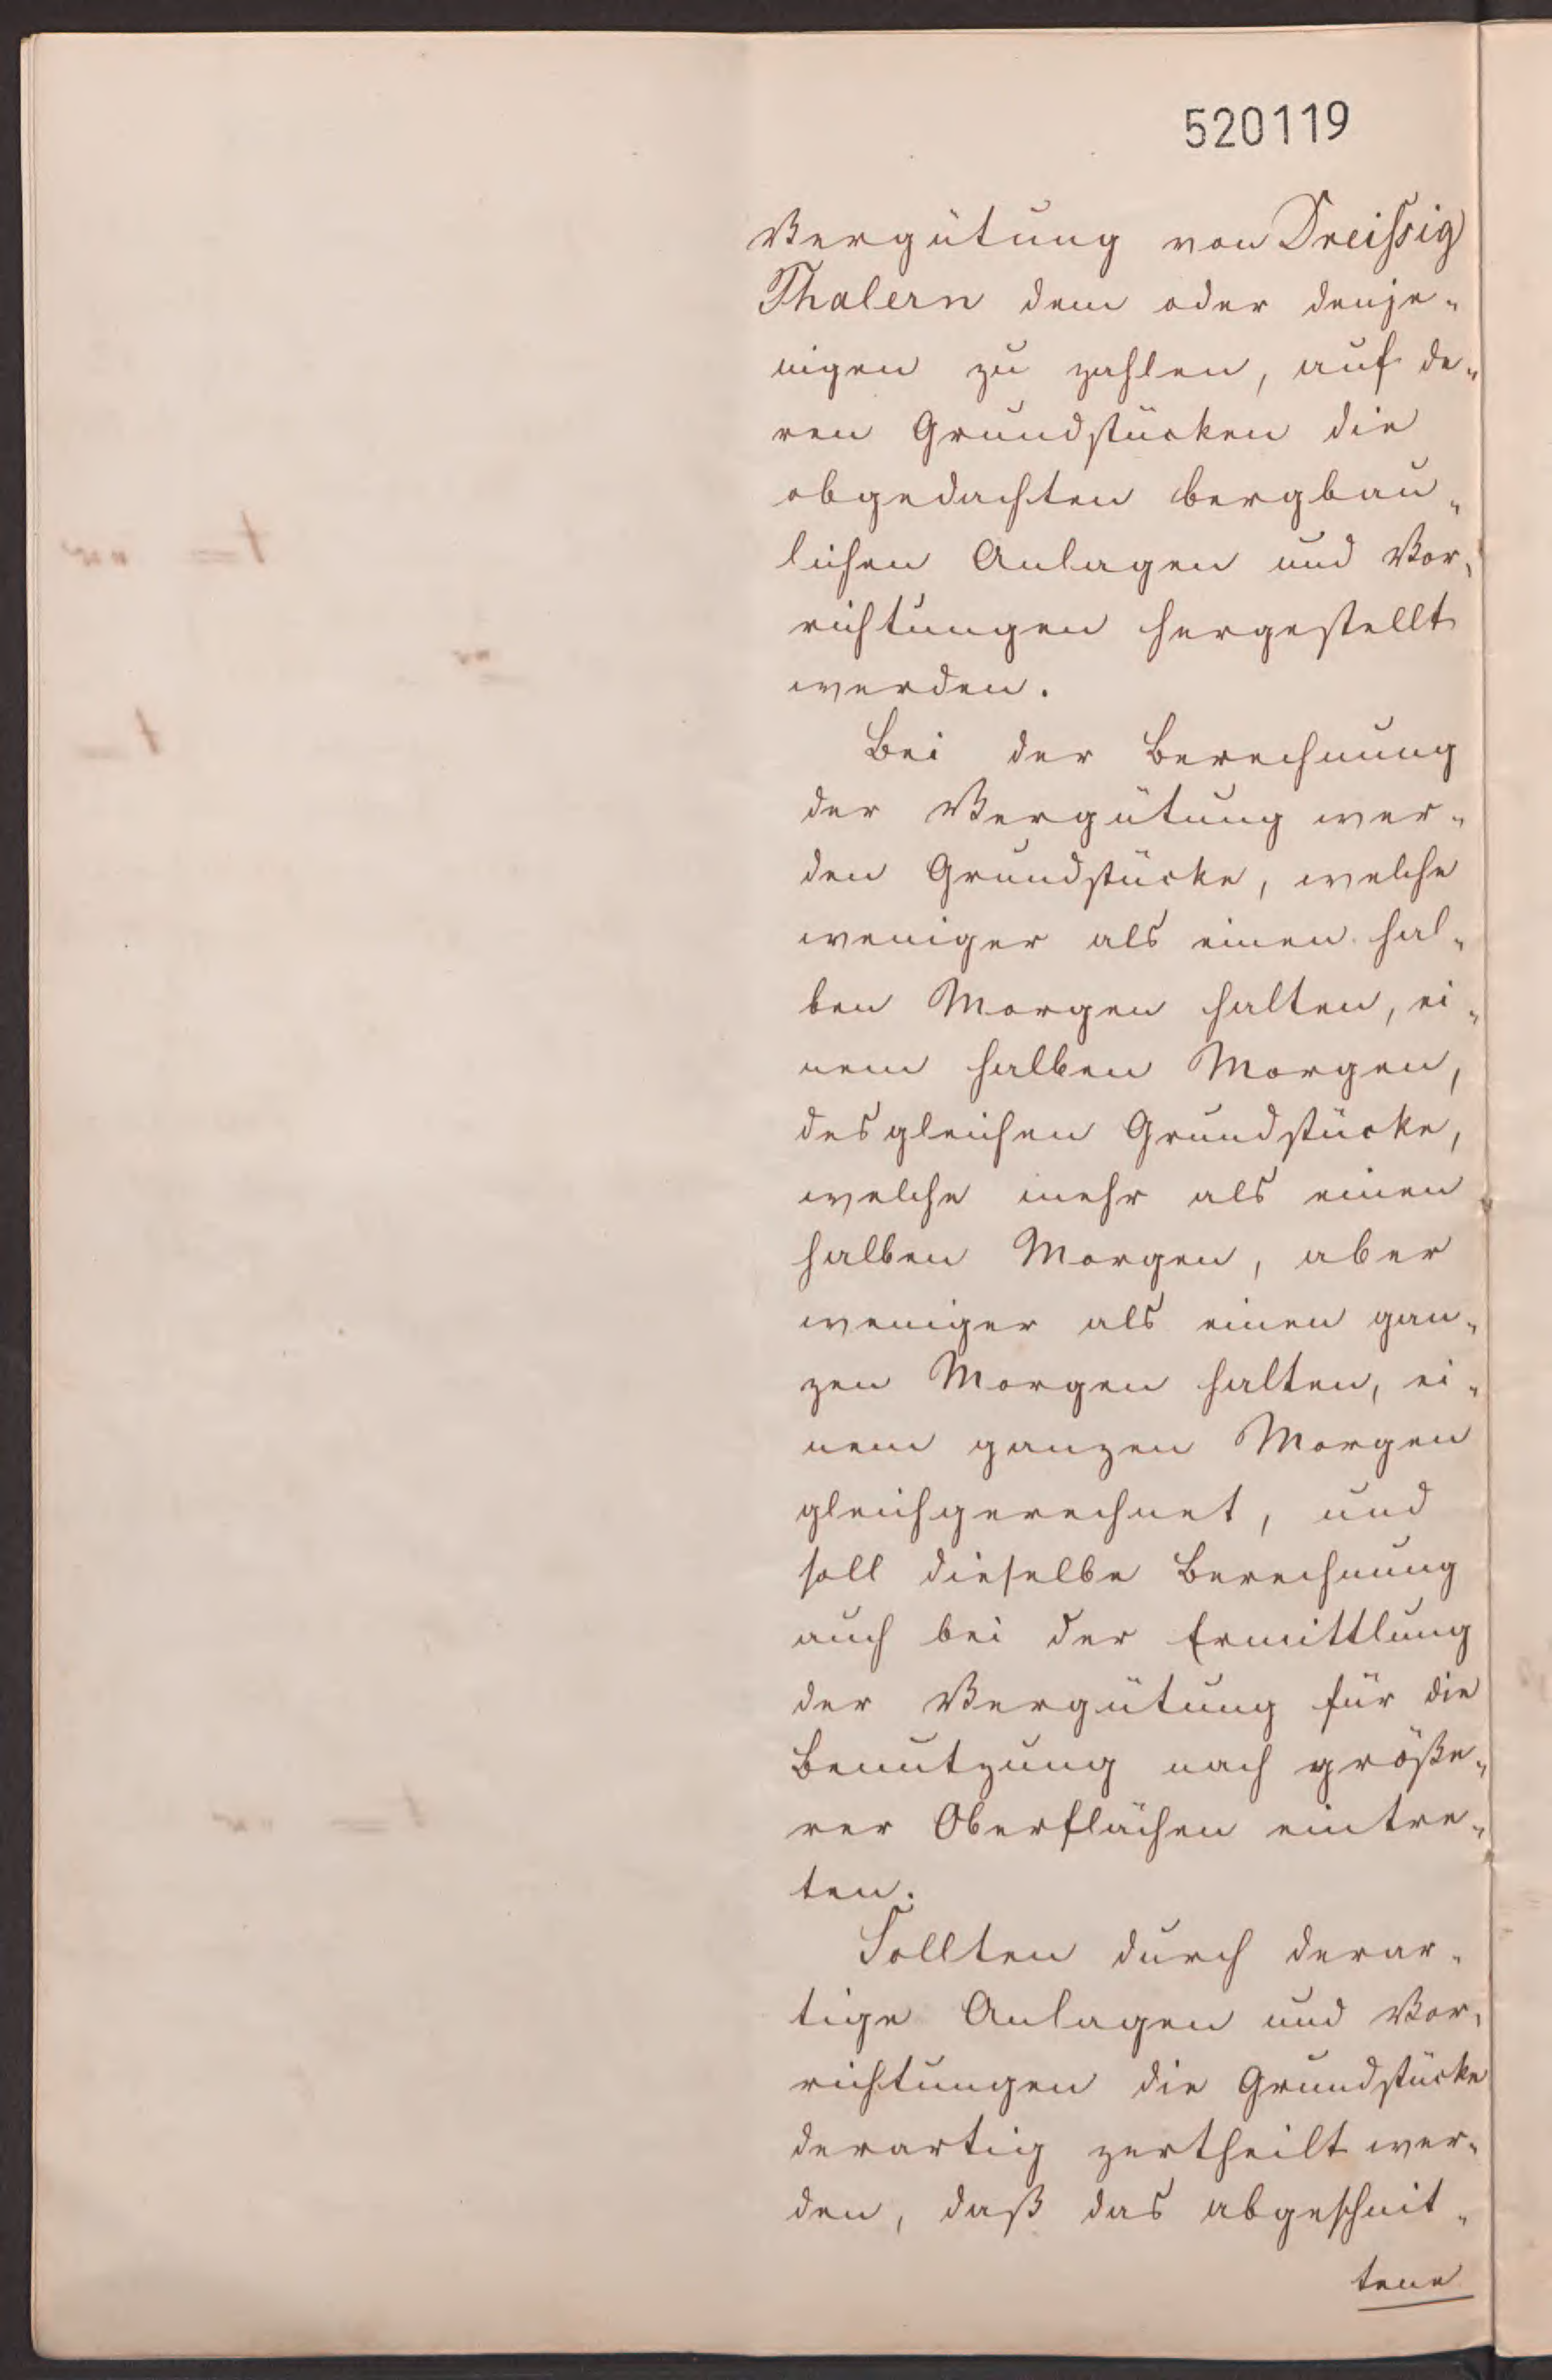 520119
Vergütung von Dreissig
Thalern dem oder denje„
nigen zu zahlen, auf de„
ren Grundstücken die
obgedachten bergbau„
lichen Anlagen und Vor„
richtungen hergestellt
werden.
Bei der Berechnung
der Vergütung wer„
den Grundstücke, welche
weniger als einen hal„
ben Morgen halten, ei„
nem halben Morgen,
desgleichen Grundstücke,
welche mehr als einen
halben Morgen, aber
weniger als einen gan„
zen Morgen halten, ei„
nem ganzen Morgen
gleichgerechnet, und
soll dieselbe Berechnung
auch bei der Ermittlung
der Vergütung für die
Benutzung nach größe„
rer Oberflächen eintre„
ten.
Sollten durch derar„
tige Anlagen und Vor„
richtungen die Grundstücke
derartig zertheilt wer„
den, daß das abgeschnit„
tene